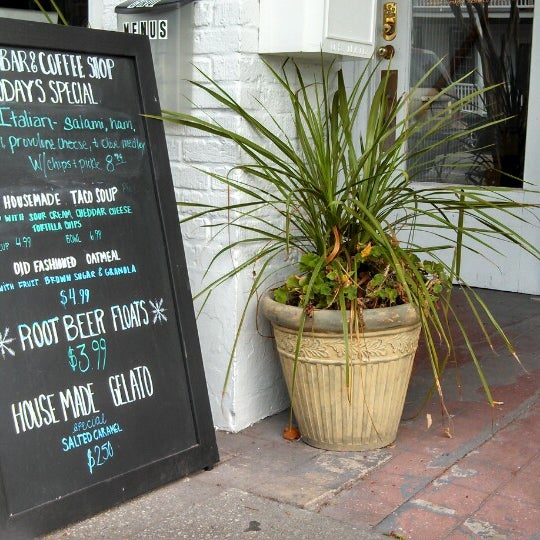 MENUS
BAR & COFFEE SHOP
DAY'S SPECIAL
Italian - Salami, ham,
provolone cheese, + olive medley
w/ chips + pickle 8
HOUSEMADE TACO SOUP
WITH SOUR CREAM, CHEDDAR CHEESE
TORTILLA CHIPS
CUP 4.99 BOWL 6.99
OLD FASHIONED OATMEAL
WITH FRUIT BROWN SUGAR & GRANOLA
$4.99
ROOT BEER FLOATS
$3.99
HOUSE MADE GELATO
special
SALTED CARAMEL
$2.50